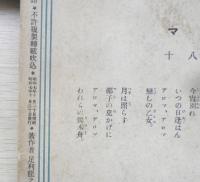 マ
八十
今宵別れ
いつの日逢はん
戀しの乙女、
アロマ、アロマ
月は照らす
椰子の葉かげに
アロマ、アロマ
われらの獨木舟。
不許複製轉載吹込
著作者 足利龍之